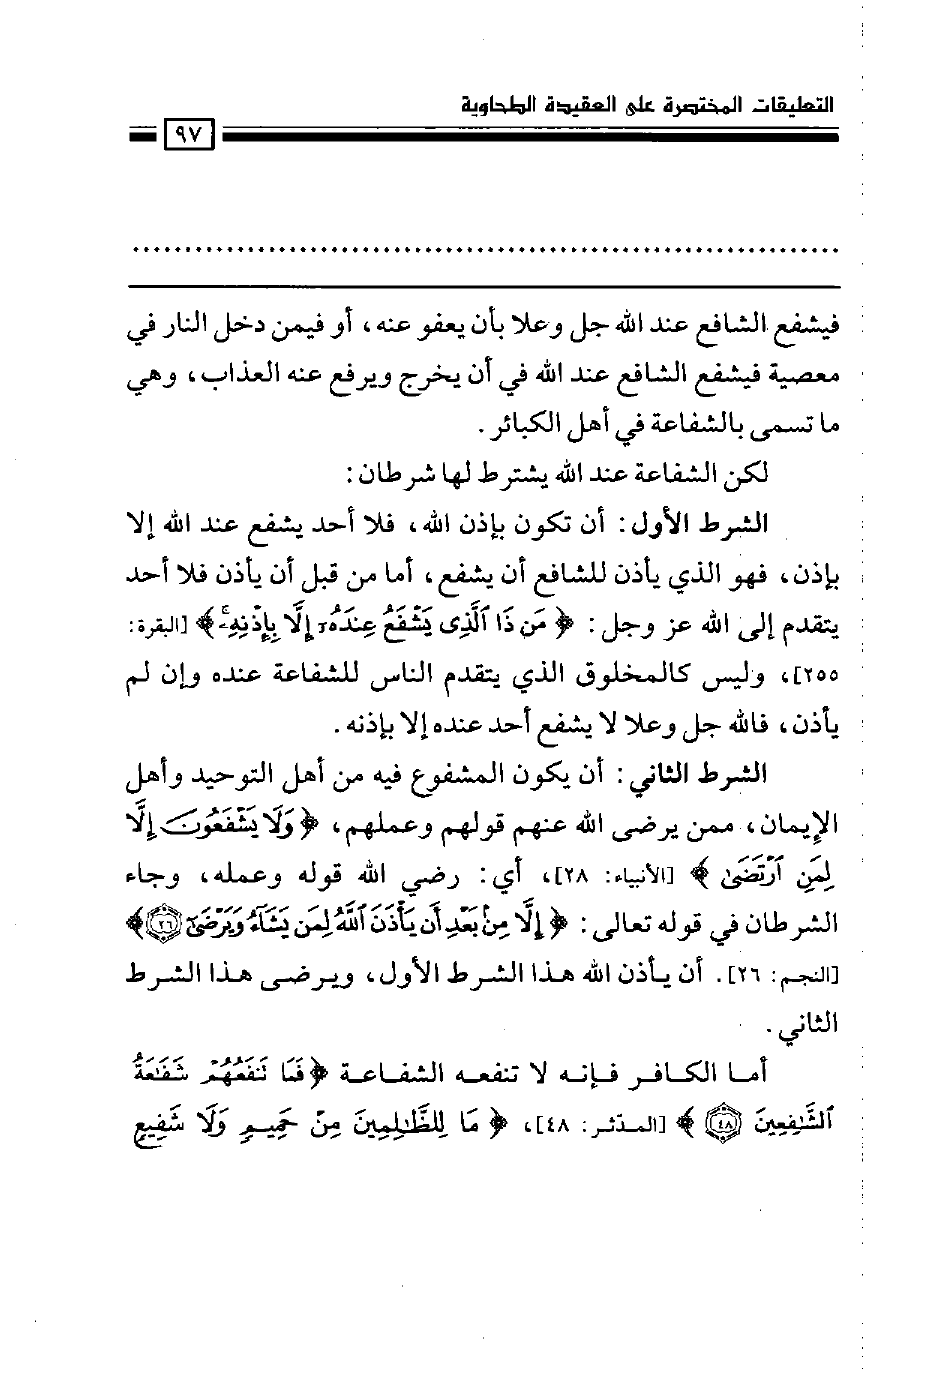 التعليقات المختصرة على العقيدة الطحاوية
٩٧
فيشفع الشافع عند الله جل وعلا بأن يعفو عنه، أو فيمن دخل النار في
معصية فيشفع الشافع عند الله في أن يخرج ويرفع عنه العذاب، وهي
ما تسمى بالشفاعة في أهل الكبائر.
لكن الشفاعة عند الله يشترط لها شرطان:
الشرط الأول: أن تكون بإذن الله، فلا أحد يشفع عند الله إلا
بإذن، فهو الذي يأذن للشافع أن يشفع، أما من قبل أن يأذن فلا أحد
يتقدم إلى الله عز وجل: ﴿ مَن ذَا ٱلَّذِى يَشْفَعُ عِندَهُۥٓ إِلَّا بِإِذْنِهِۦ ﴾ [البقرة:
٢٥٥]، وليس كالمخلوق الذي يتقدم الناس للشفاعة عنده وإن لم
يأذن، فالله جل وعلا لا يشفع أحد عنده إلا بإذنه.
الشرط الثاني: أن يكون المشفوع فيه من أهل التوحيد وأهل
الإيمان، ممن يرضى الله عنهم قولهم وعملهم، ﴿ وَلَا يَشْفَعُونَ إِلَّا
لِمَنِ ٱرْتَضَىٰ ﴾ [الأنبياء: ٢٨]، أي: رضي الله قوله وعمله، وجاء
الشرطان في قوله تعالى: ﴿ إِلَّا مِنۢ بَعْدِ أَن يَأْذَنَ ٱللَّهُ لِمَن يَشَآءُ وَيَرْضَىٰٓ ٢٦ ﴾
[النجم: ٢٦]. أن يأذن الله هذا الشرط الأول، ويرضى هذا الشرط
الثاني.
أما الكافر فإنه لا تنفعه الشفاعة ﴿ فَمَا تَنفَعُهُمْ شَفَٰعَةُ
ٱلشَّٰفِعِينَ ٤٨ ﴾ [المدثر: ٤٨]، ﴿ مَا لِلظَّٰلِمِينَ مِنْ حَمِيمٍ وَلَا شَفِيعٍ